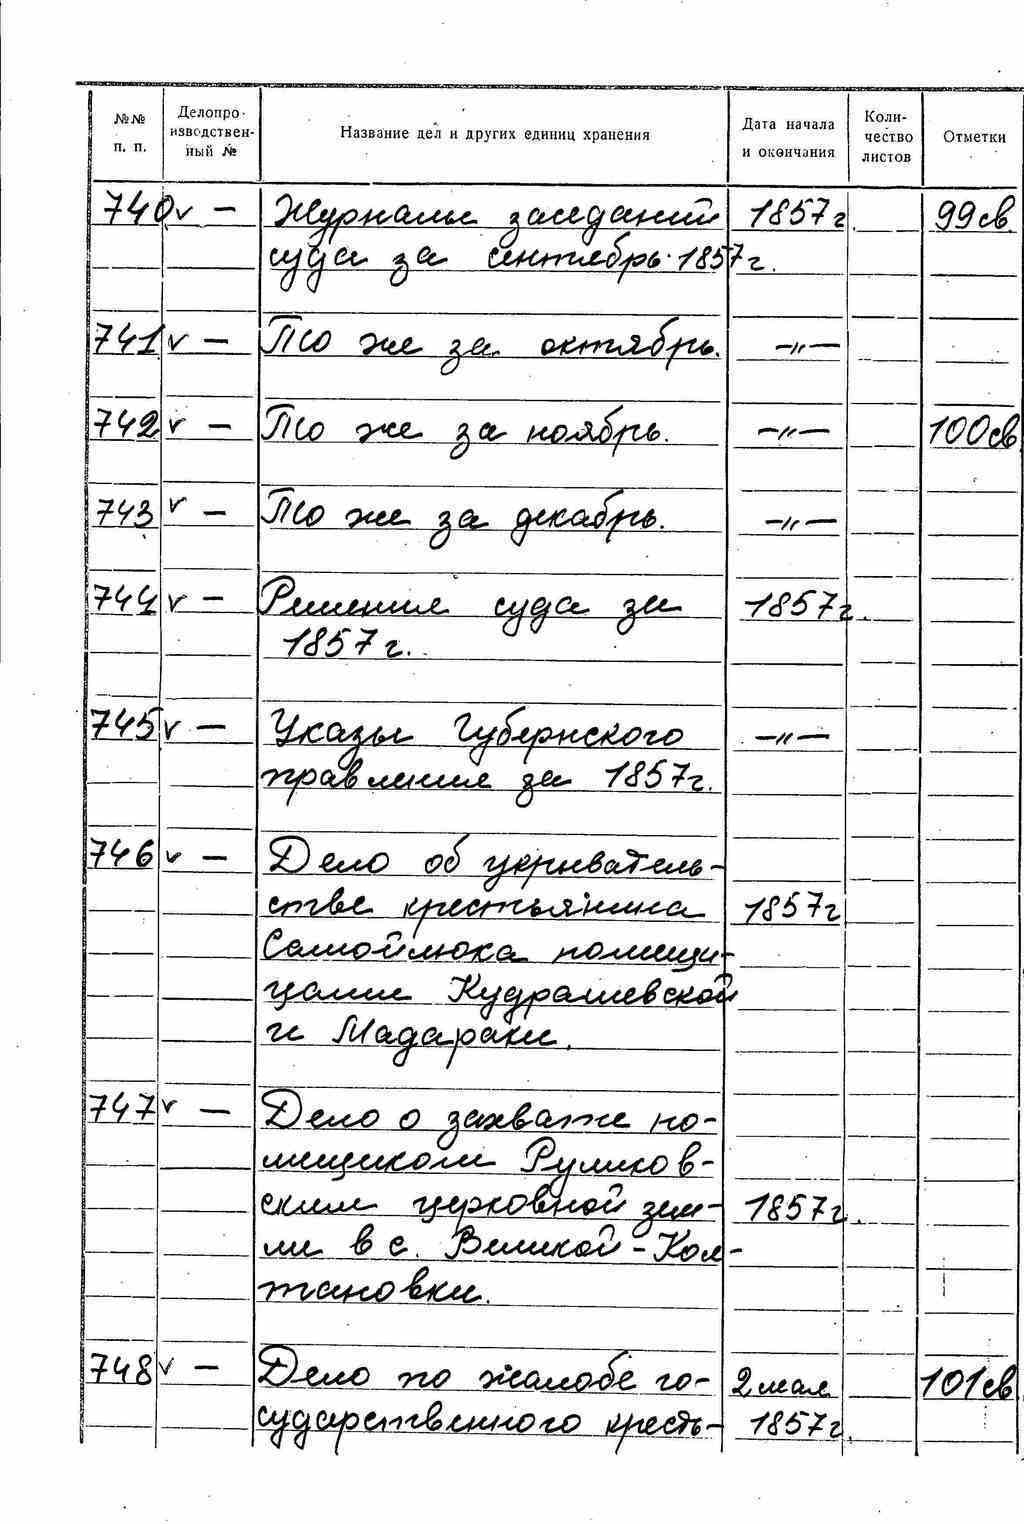 №№ п. п.
Делопро-
изводствен-
ный №
Название дел и других единиц хранения
Дата начала
и окончания
Коли-
чество
листов
Отметки
740 v — Журналы заседаний 1857 г. 99 св.
суда за сентябрь 1857 г.
741 v — То же за октябрь. —〃—
742 v — То же за ноябрь. —〃— 100 св
743 v — То же за декабрь. —〃—
744 v — Решения суда за 1857 г.
1857 г.
745 v — Указы Губернского —〃—
правления за 1857 г.
746 v — Дело об укрыватель-
стве крестьянина 1857 г
Самойлюка помещи-
цами Кудрашевской
и Мадараки.
747 v — Дело о захвате по-
мещиком Руликов-
ским церковной зем- 1857 г.
ли в с. Великой-Кол-
тановки.
748 v — Дело по жалобе го- 2 мая 101 св.
сударственного кресть- 1857 г.